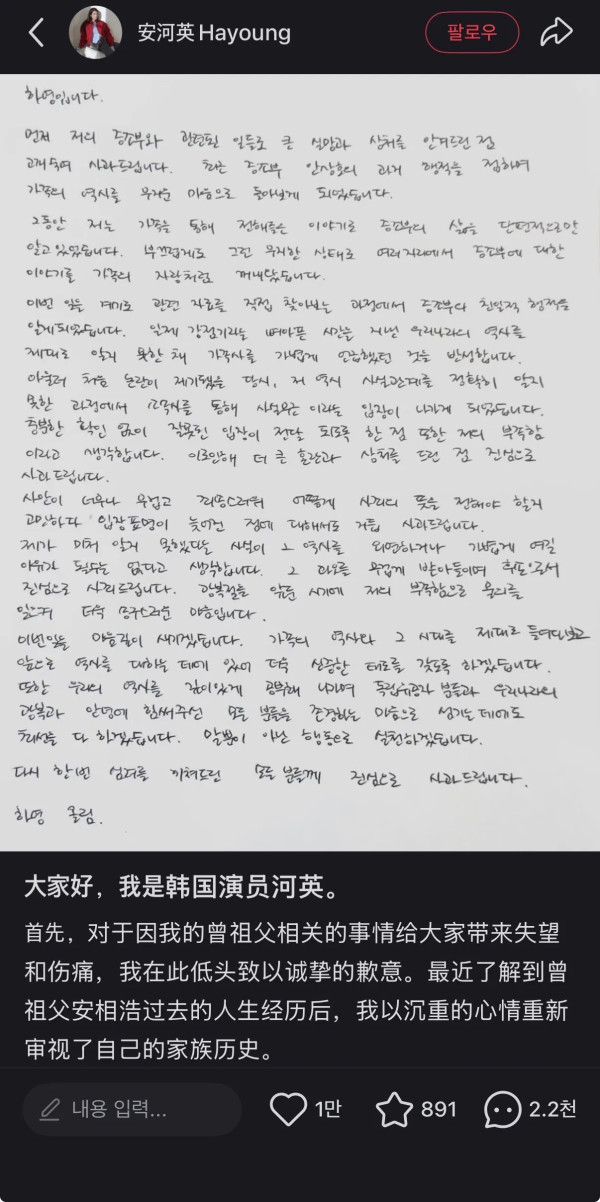 安河英Hayoung
팔로우
하영입니다.
먼저 저의 증조부와 관련된 일들로 큰 실망과 상처를 안겨드린 점
고개숙여 사과드립니다. 최근 증조부 안상호의 과거 행적을 접하며
가족의 역사를 무거운 마음으로 돌아보게 되었습니다.
그동안 저는 가족을 통해 전해들은 이야기로 증조부의 삶을 단편적으로만
알고 있었습니다. 부끄럽게도 그런 무지한 상태로 여러 자리에서 증조부에 대한
이야기를 가족의 자랑처럼 꺼내왔습니다.
이번 일을 계기로 관련 자료를 직접 찾아보는 과정에서 증조부의 친일적 행적을
알게되었습니다. 일제 강점기라는 뼈아픈 시간을 지낸 우리나라의 역사를
제대로 알지 못한 채 가족사를 가볍게 언급했던 것을 반성합니다.
아울러 처음 논란이 제기됐을 당시, 저 역시 사실관계를 정확히 알지
못한 과정에서 소속사를 통해 사실무근 이라는 입장이 나가게 되었습니다.
충분한 확인 없이 잘못된 입장이 전달 되도록 한 점 또한 저의 부족함
이라고 생각합니다. 이로인해 더 큰 혼란과 상처를 드린 점 진심으로
사과드립니다.
사안이 너무나 무겁고 죄송스러워 어떻게 사죄의 뜻을 전해야 할지
고민하다 입장표명이 늦어진 점에 대해서도 거듭 사과드립니다.
제가 미처 알지 못했다는 사실이 그 역사를 외면하거나 가볍게 여길
이유가 될수는 없다고 생각합니다. 그 과오를 무겁게 받아들이며 후손으로서
진심으로 사죄드립니다. 광복절을 앞둔 시기에 저의 부족함으로 물의를
일으켜 더욱 송구스러운 마음입니다.
이번일을 마음깊이 새기겠습니다. 가족의 역사와 그 시대를 제대로 들여다보고
앞으로 역사를 대하는 데에 있어 더욱 신중한 태도를 갖도록 하겠습니다.
또한 우리의 역사를 깊이있게 공부해 나가며 독립유공자 분들과 우리나라의
광복과 안녕에 힘써주신 모든 분들을 존경하는 마음으로 섬기는데에도
최선을 다 하겠습니다. 말뿐이 아닌 행동으로 실천하겠습니다.
다시 한번 심려를 끼쳐드린 모든 분들께 진심으로 사과드립니다.
하영 올림.
大家好，我是韩国演员河英。
首先，对于因我的曾祖父相关的事情给大家带来失望
和伤痛，我在此低头致以诚挚的歉意。最近了解到曾
祖父安相浩过去的人生经历后，我以沉重的心情重新
审视了自己的家族历史。
내용 입력...
1만
891
2.2천